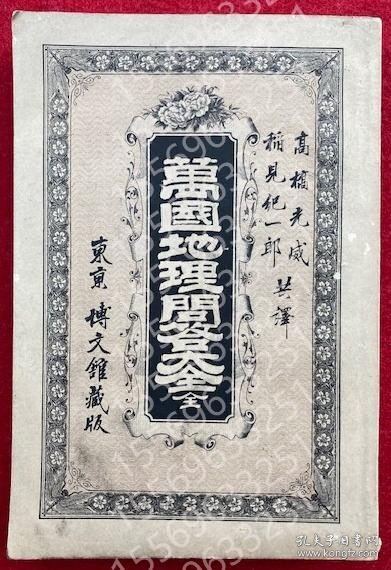 高橋光威
稲見紀一郎
共譯
萬國地理問答大全
全
東京 博文館藏版
孔夫子旧书网
www.kongfz.com